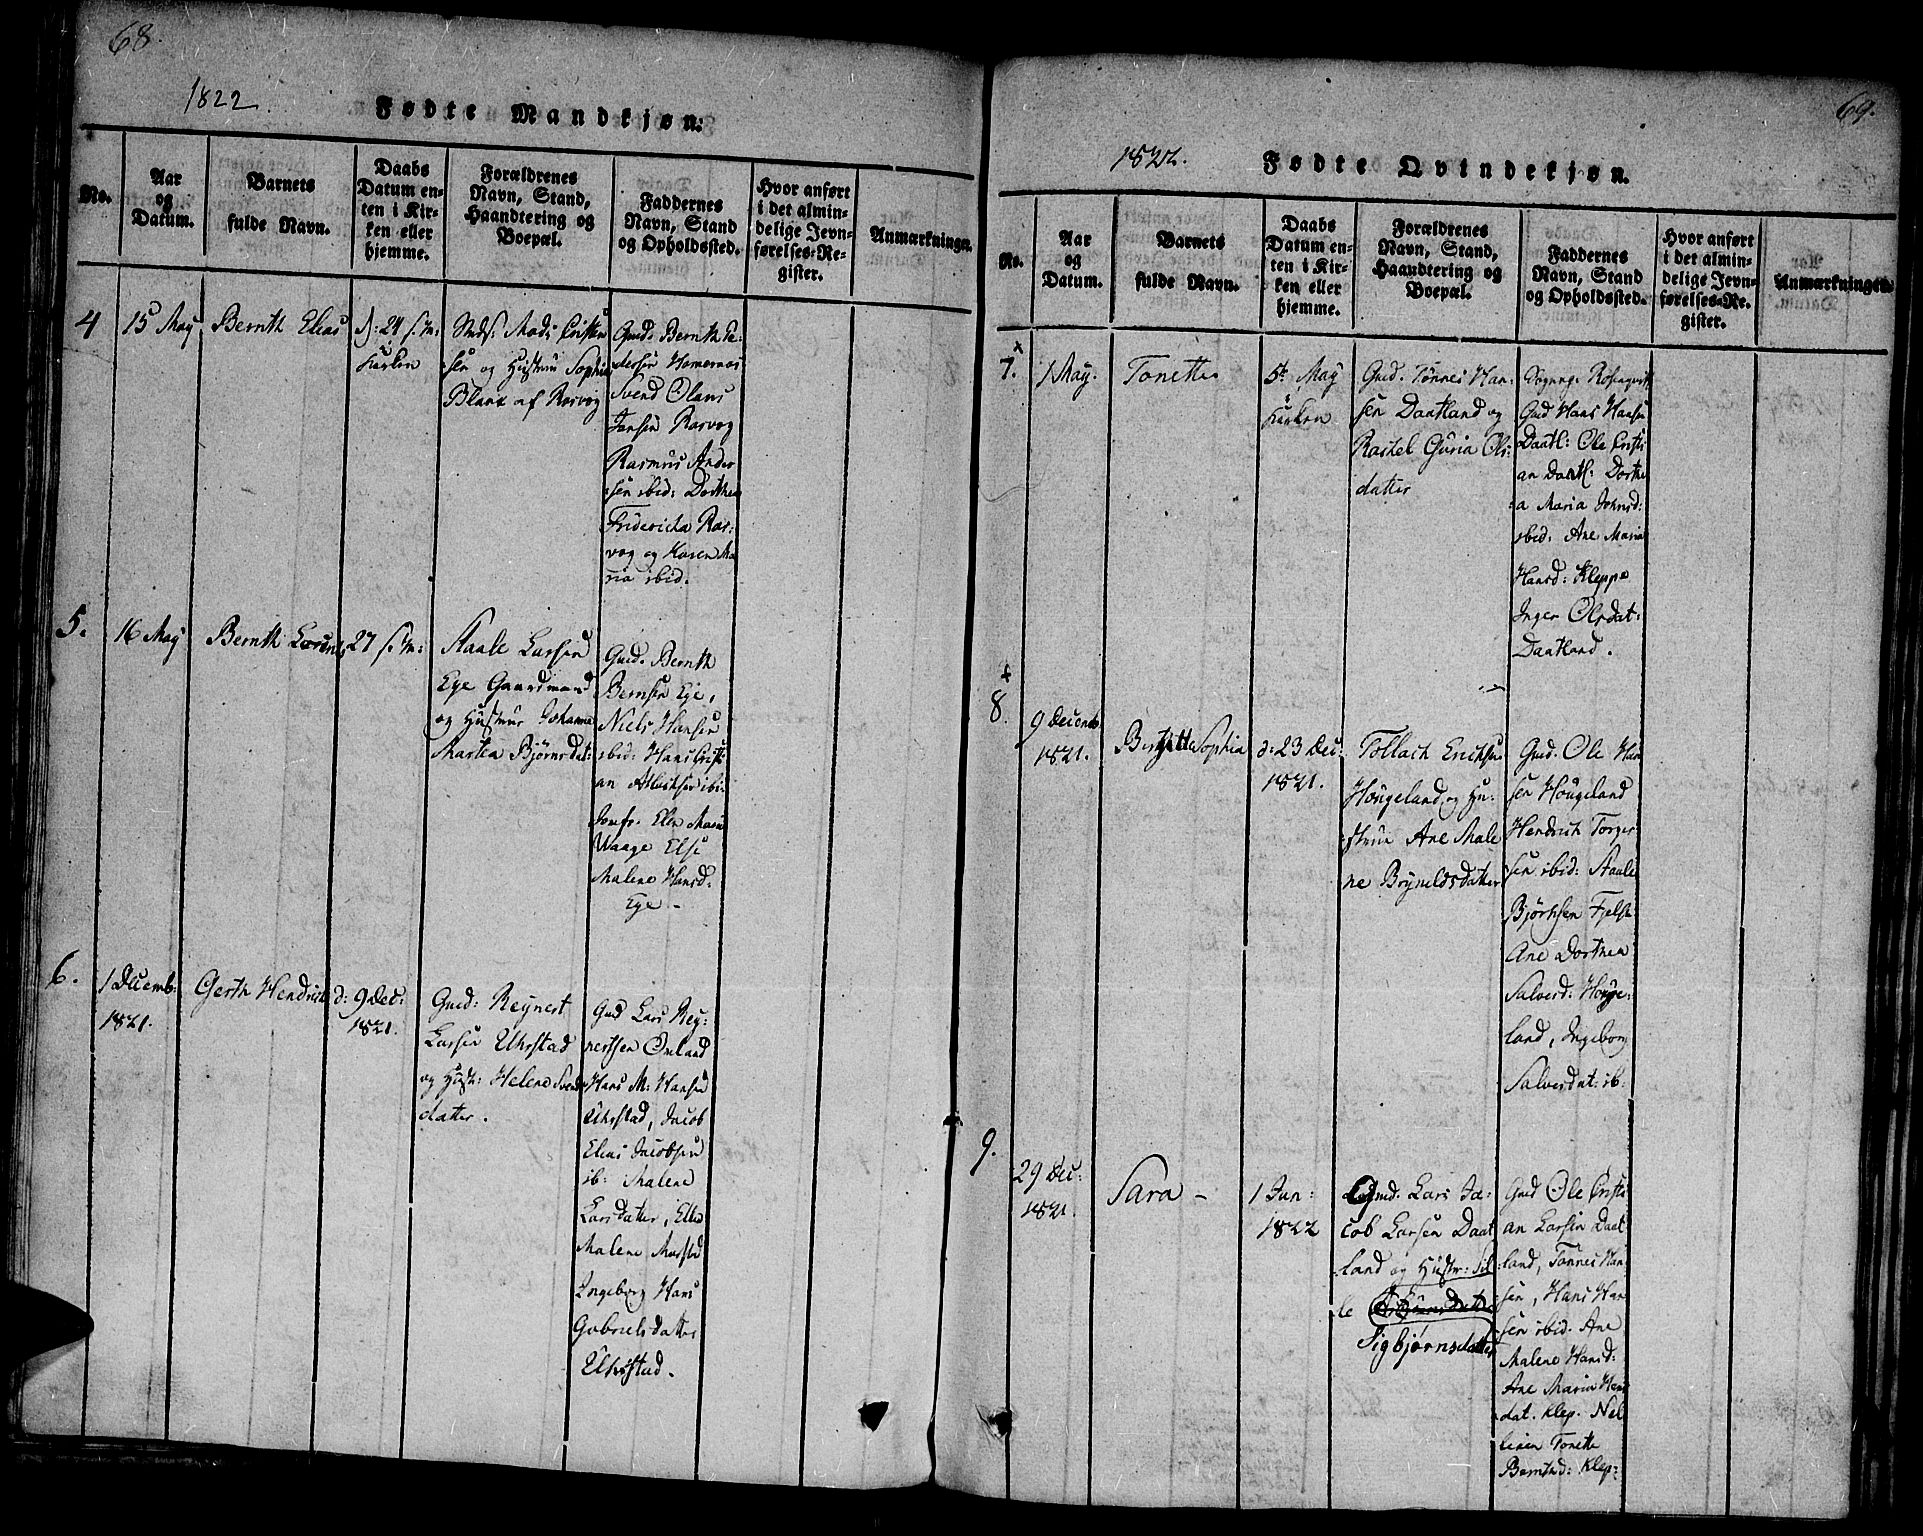 68.
1822
Fødte Mandkjøn:
No.
Aar
og
Datum.
Barnets
fulde Navn.
Daabs
Datum en-
ten i Kir-
ken eller
hjemme.
Forældrenes
Navn, Stand,
Haandtering og
Boepæl.
Faddernes
Navn, Stand
og Opholdssted.
Hvor anført
i det almin-
delige Jevn-
førelses-Re-
gister.
Anmærkninger.
4
15 May
Bernth Elias
Kirken
og Hustrue Sophia
Blanx af Rasvog
Gmd. Bernth Pe-
dersen
Svend Olaus
Jansen Rasvog
Rasmus Ander
sen ibid: Dorthea
Fridericka Ras:
vog og Karen Ma
ria ibid.
5.
16 May
Bernth Lorents
27 s. M:
Staale Larsen
Ege Gaardmand
og Hustrue Johanna
Martea Bjørnsdat:
Gmd. Bernth
Bernsen Ege,
Niels Hansen
ibid: Hans Cristi
an
Jomfr. Elen Maria
Waage Else
Malene Hansd:
Ege -
6.
1 Decemb:
1821.
Gerth Hendrich
d: 9 Dec:
1821.
Gmd: Reynert
Larsen Uhrstad
og Hust: Helene Svends
datter.
Gmd Lars Rey:
nertsen Omland
Hans M: Hansen
Uhrstad, Jacob
Elias Jacobsen
ib: Malene
Larsdatter, Ellen
Malene
Ingeborg Hans
Gabrielsdatter
Uhrstad.
69.
1822.
Fødte Qvindekjøn.
No.
Aar
og
Datum.
Barnets
fulde Navn.
Daabs
Datum en-
ten i Kir-
ken eller
hjemme.
Forældrenes
Navn, Stand,
Haandtering og
Boepæl.
Faddernes
Navn, Stand
og Opholdssted.
Hvor anført
i det almin-
delige Jevn-
førelses-Re-
gister.
Anmærkninger.
7.
1 May.
Tonette
5te May
Kirken
Gmd. Tønnes Han:
sen Daatland og
Rachel Guria Ols:
datter
Sogneprs. Rosenqvist
Gmd Hans Hansen
Daatl: Ole Cristi
an Daatl: Dorthe
a Maria Johnsd:
ibid: Ane Maria
Hansd: Kleppe
Inger Olsdat:
Daatland.
8.
9 Decemb.
1821.
Birgitta Sophia
d: 23 Dec:
1821.
Tollach Erichsen
Hougeland og Hu:
strue Ane Male
ne Brynildsdatter
Gmd. Ole Han
sen Hougeland
Hendrich Torger
sen ibid: Staale
Bjørnsen Fjelse
Ane Dorthea
Salvesd: Houge:
land, Ingeborg
Salvesdat: ib:
9.
29 Dec:
1821.
Sara -
1 Jan:
1822
Gmd. Lars Ja:
cob Larsen Daat
land og Hustr: Sil
le
Sigbjørnsdatter
Gmd Ole Cristi
an Larsen Daat
land, Tønnes Han
sen, Hans Han
sen ibid. Ane
Malene Hansd:
Ane Maria Hans
dat. Klep. Nel
Tonette
Berntsd: Klep: